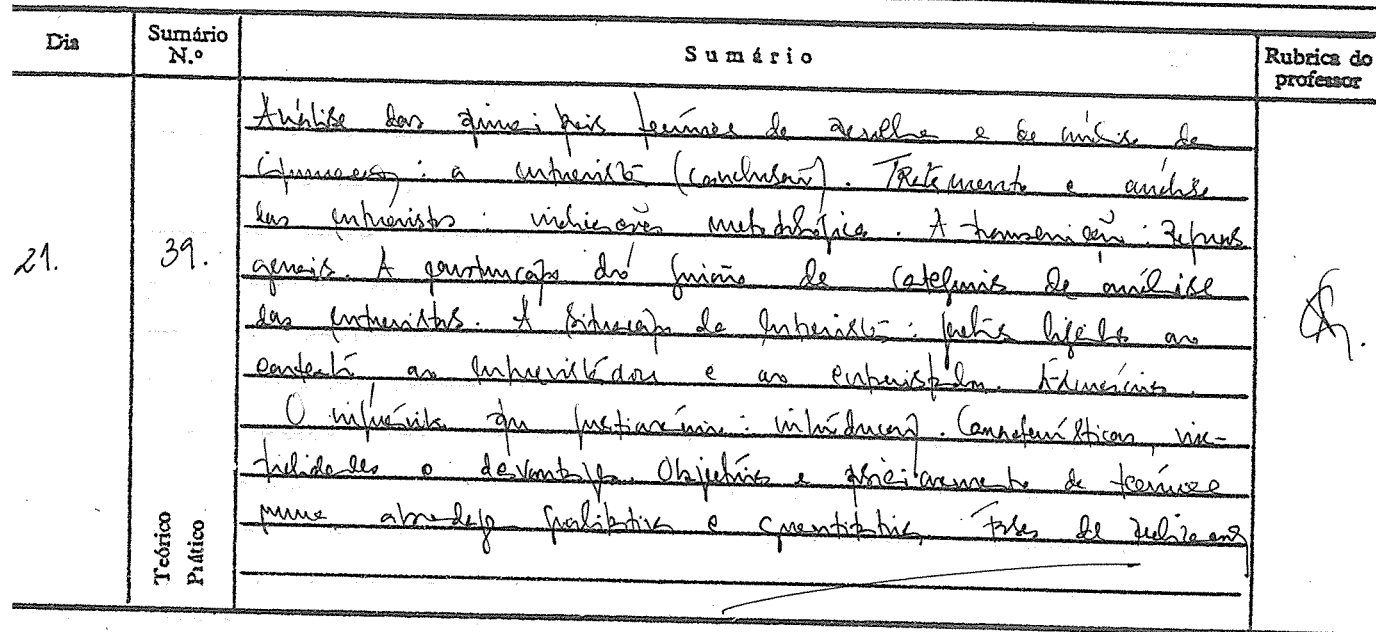 Dia
Sumário N.º
Sumário
Rubrica do professor
21.
39.
Teórico
Prático
Análise das principais técnicas de recolha e de análise de
informação: a entrevista (conclusão). Tratamento e análise
das entrevistas: indicações metodológicas. A transcrição: regras
gerais. A construção do guião de categorias de análise
das entrevistas. A situação de entrevista: ligados ao
contexto ao entrevistador e ao entrevistado. Exercícios.
O inquérito por questionário: introdução. Características, vir-
tualidades e desvantagens. Objectivos e da técnica
numa abordagem qualitativa e quantitativa. Fases de realização